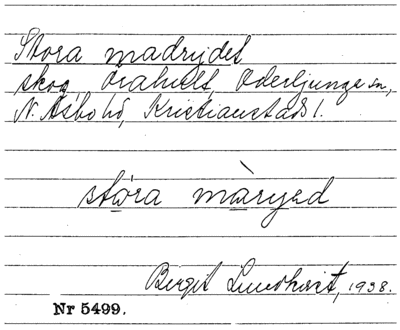 Stora madrydet
skog, Örahult, Oderljunga sn,
N. Åsbo hd, Kristianstads l.
stóra màryed
Birgit Lundqvist, 1938.
Nr 5499.